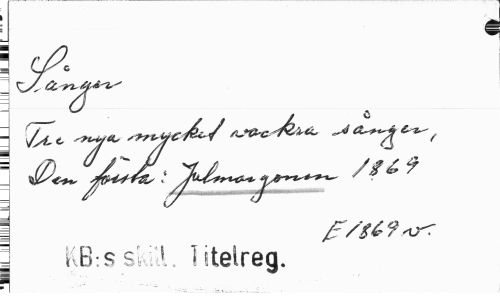 Sånger
Tre nya mycket vackra sånger,
Den första: Julmorgonen 1869
E 1869 v.
KB:s skill. Titelreg.